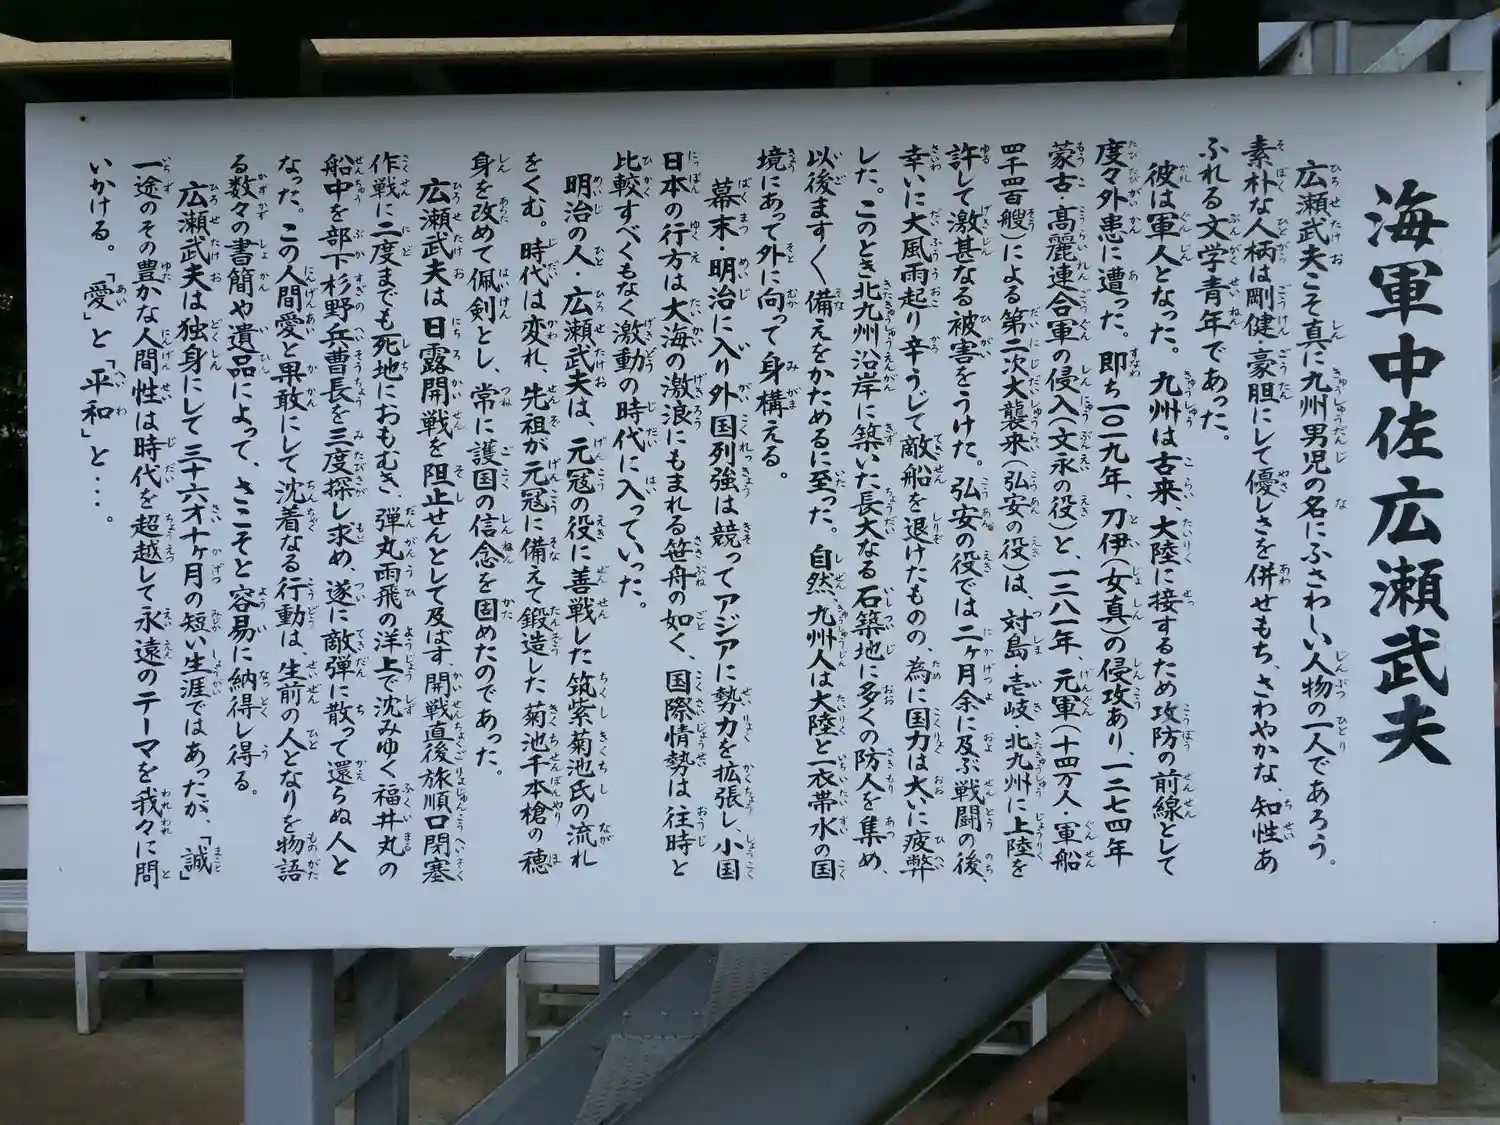 海軍中佐広瀬武夫
広瀬武夫こそ真に九州男児の名にふさわしい人物の一人であろう。
素朴な人柄は剛健 豪胆にして優しさを併せもち、さわやかな、知性あ
ふれる文学青年であった。
彼は軍人となった。九州は古来、大陸に接するため攻防の前線として
度々外患に遭った。即ち一〇一九年、刀伊(女真)の侵攻あり、一二七四年
蒙古・髙麗連合軍の侵入(文永の役)と、一二八一年、元軍(十四万人・軍船
四千四百艘)による第二次大襲来(弘安の役)は、対島・壱岐・北九州に上陸を
許して激甚なる被害をうけた。弘安の役では二ヶ月余に及ぶ戦闘の後、
幸いに大風雨起り辛うじて敵船を退けたものの、為に国力は大いに疲弊
した。このとき北九州沿岸に築いた長大なる石築地に多くの防人を集め、
以後ます〱備えをかためるに至った。自然、九州人は大陸と一衣帯水の国
境にあって外に向って身構える。
幕末・明治に入り外国列強は競ってアジアに勢力を拡張し、小国
日本の行方は大海の激浪にもまれる笹舟の如く、国際情勢は往時と
比較すべくもなく激動の時代に入っていった。
明治の人・広瀬武夫は、元寇の役に善戦した筑紫菊池氏の流れ
をくむ。時代は変れ、先祖が元寇に備えて鍛造した菊池千本槍の穂
身を改めて佩剣とし、常に護国の信念を固めたのであった。
広瀬武夫は日露開戦を阻止せんとして及ばず、開戦直後旅順口閉塞
作戦に二度までも死地におもむき、弾丸雨飛の洋上で沈みゆく福井丸の
船中を部下杉野兵曹長を三度探し求め、遂に敵弾に散って還らぬ人と
なった。この人間愛と果敢にして沈着なる行動は、生前の人となりを物語
る数々の書簡や遺品によって、さこそと容易に納得し得る。
広瀬武夫は独身にして三十六才十ヶ月の短い生涯ではあったが、「誠」
一途のその豊かな人間性は時代を超越して永遠のテーマを我々に問
いかける。「愛」と「平和」と・・・。